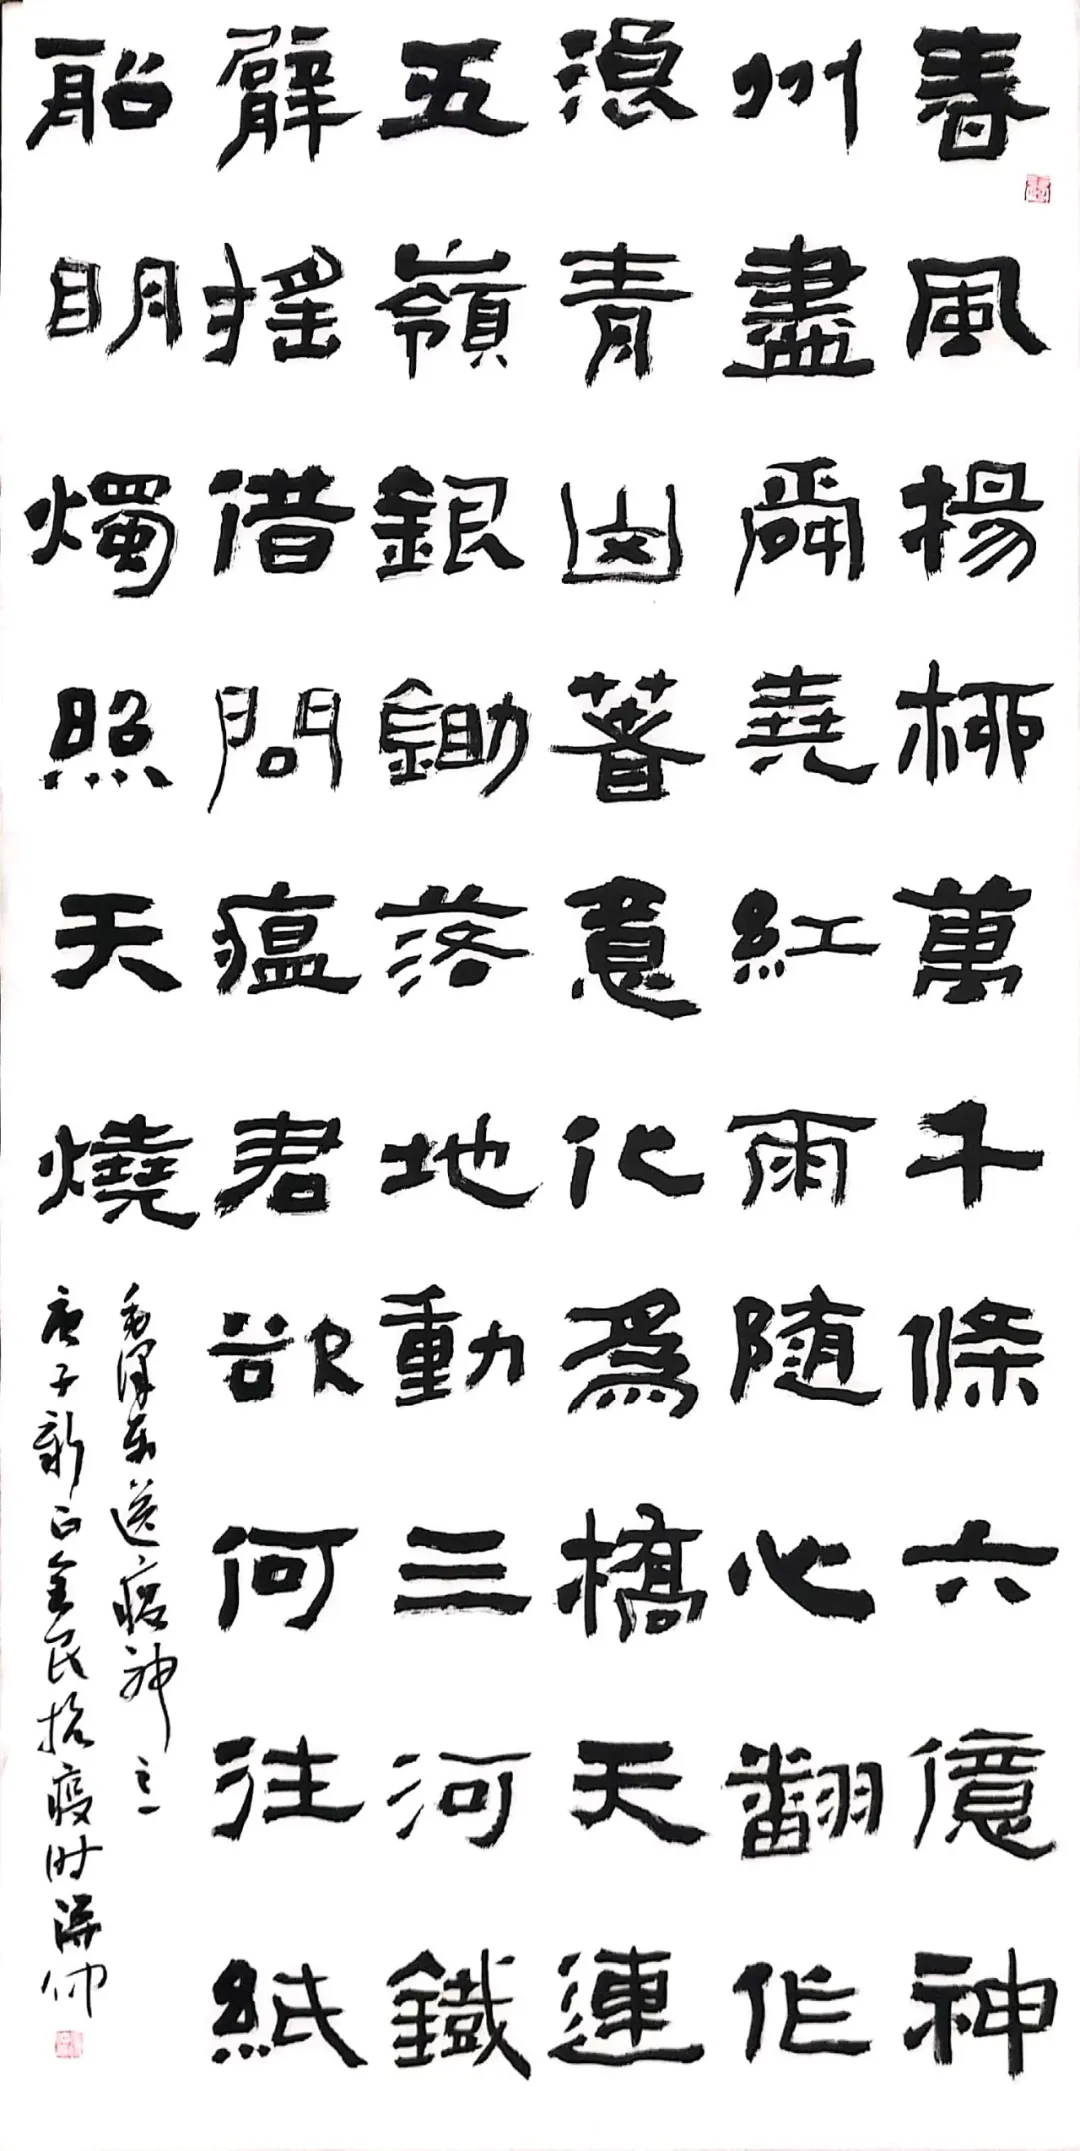 春風揚柳萬千條六億神
州盡舜堯紅雨随心翻作
浪青山著意化爲橋天連
五嶺銀鋤落地動三河鐵
臂摇借問瘟君欲何往紙
船明燭照天燒
毛澤東送瘟神之一
庚子新正全民抗疫时